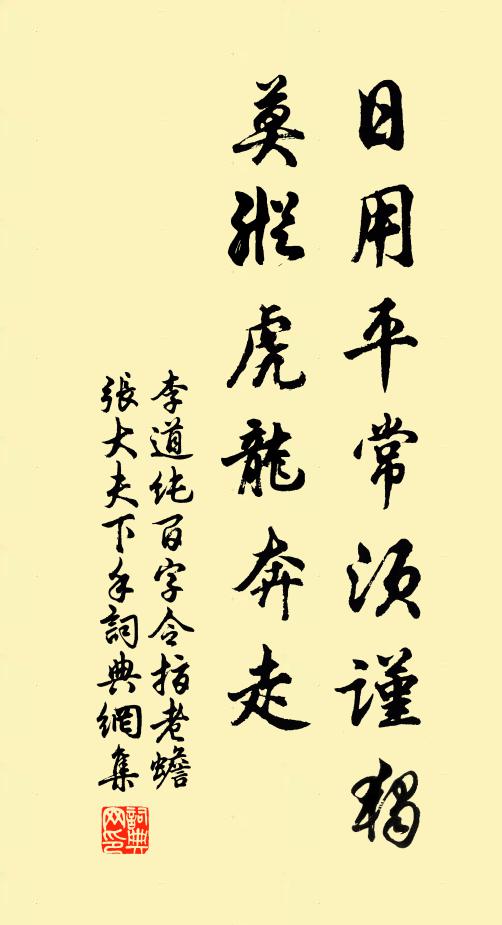 日用平常須謹獨
莫縱虎龍奔走
李道純百字令指老蟾
張大夫下手詞典網集
詞典網印